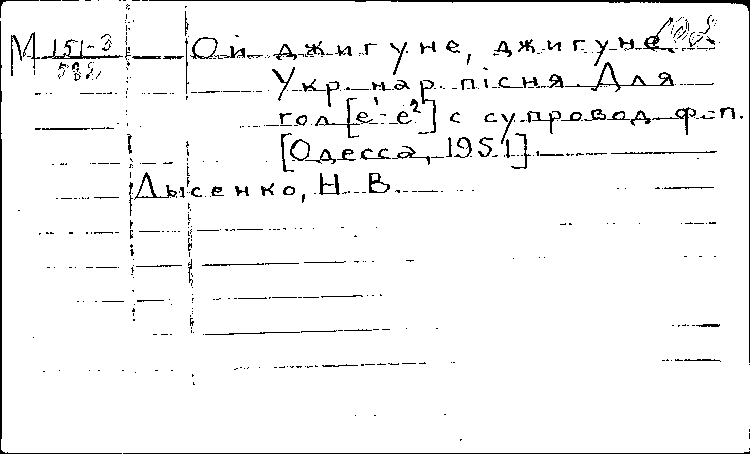 М 151-3
582
Ой джигуне, джигуне.
Укр. нар. пісня. Для
гол [e¹-e²] с супровод. ф-п.
[Одесса, 1951].
Лысенко, Н. В.